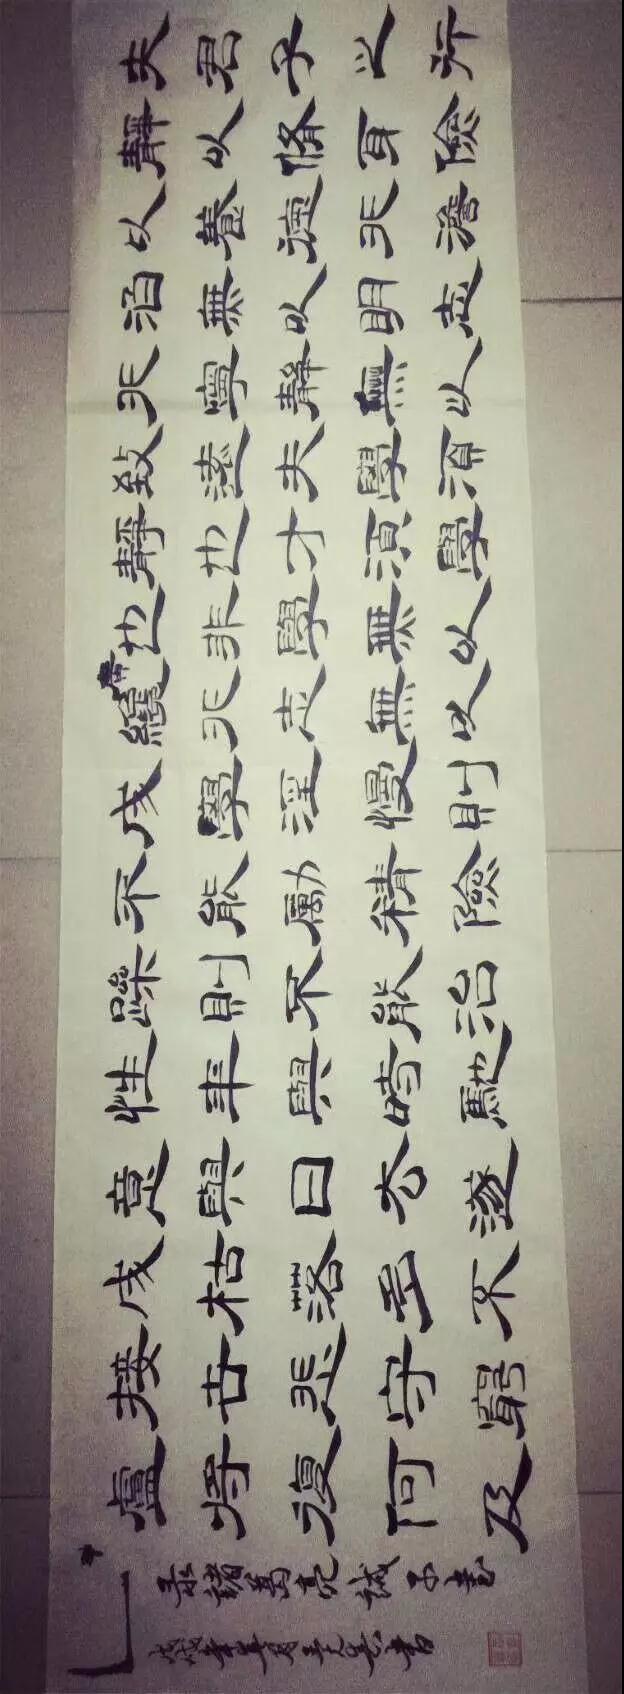 夫君子之行
静以脩身險
以養德非澹
泊無以明志
非寧静無以
致遠夫學須
静也才須學
也非學無以
廣纔非志無以
成學淫慢則
不能勵精險
躁則不能治
性年與時馳
意與日去遂
成枯落不
接世悲守窮
廬將復何及
录諸葛亮誡子書
戊戌年書